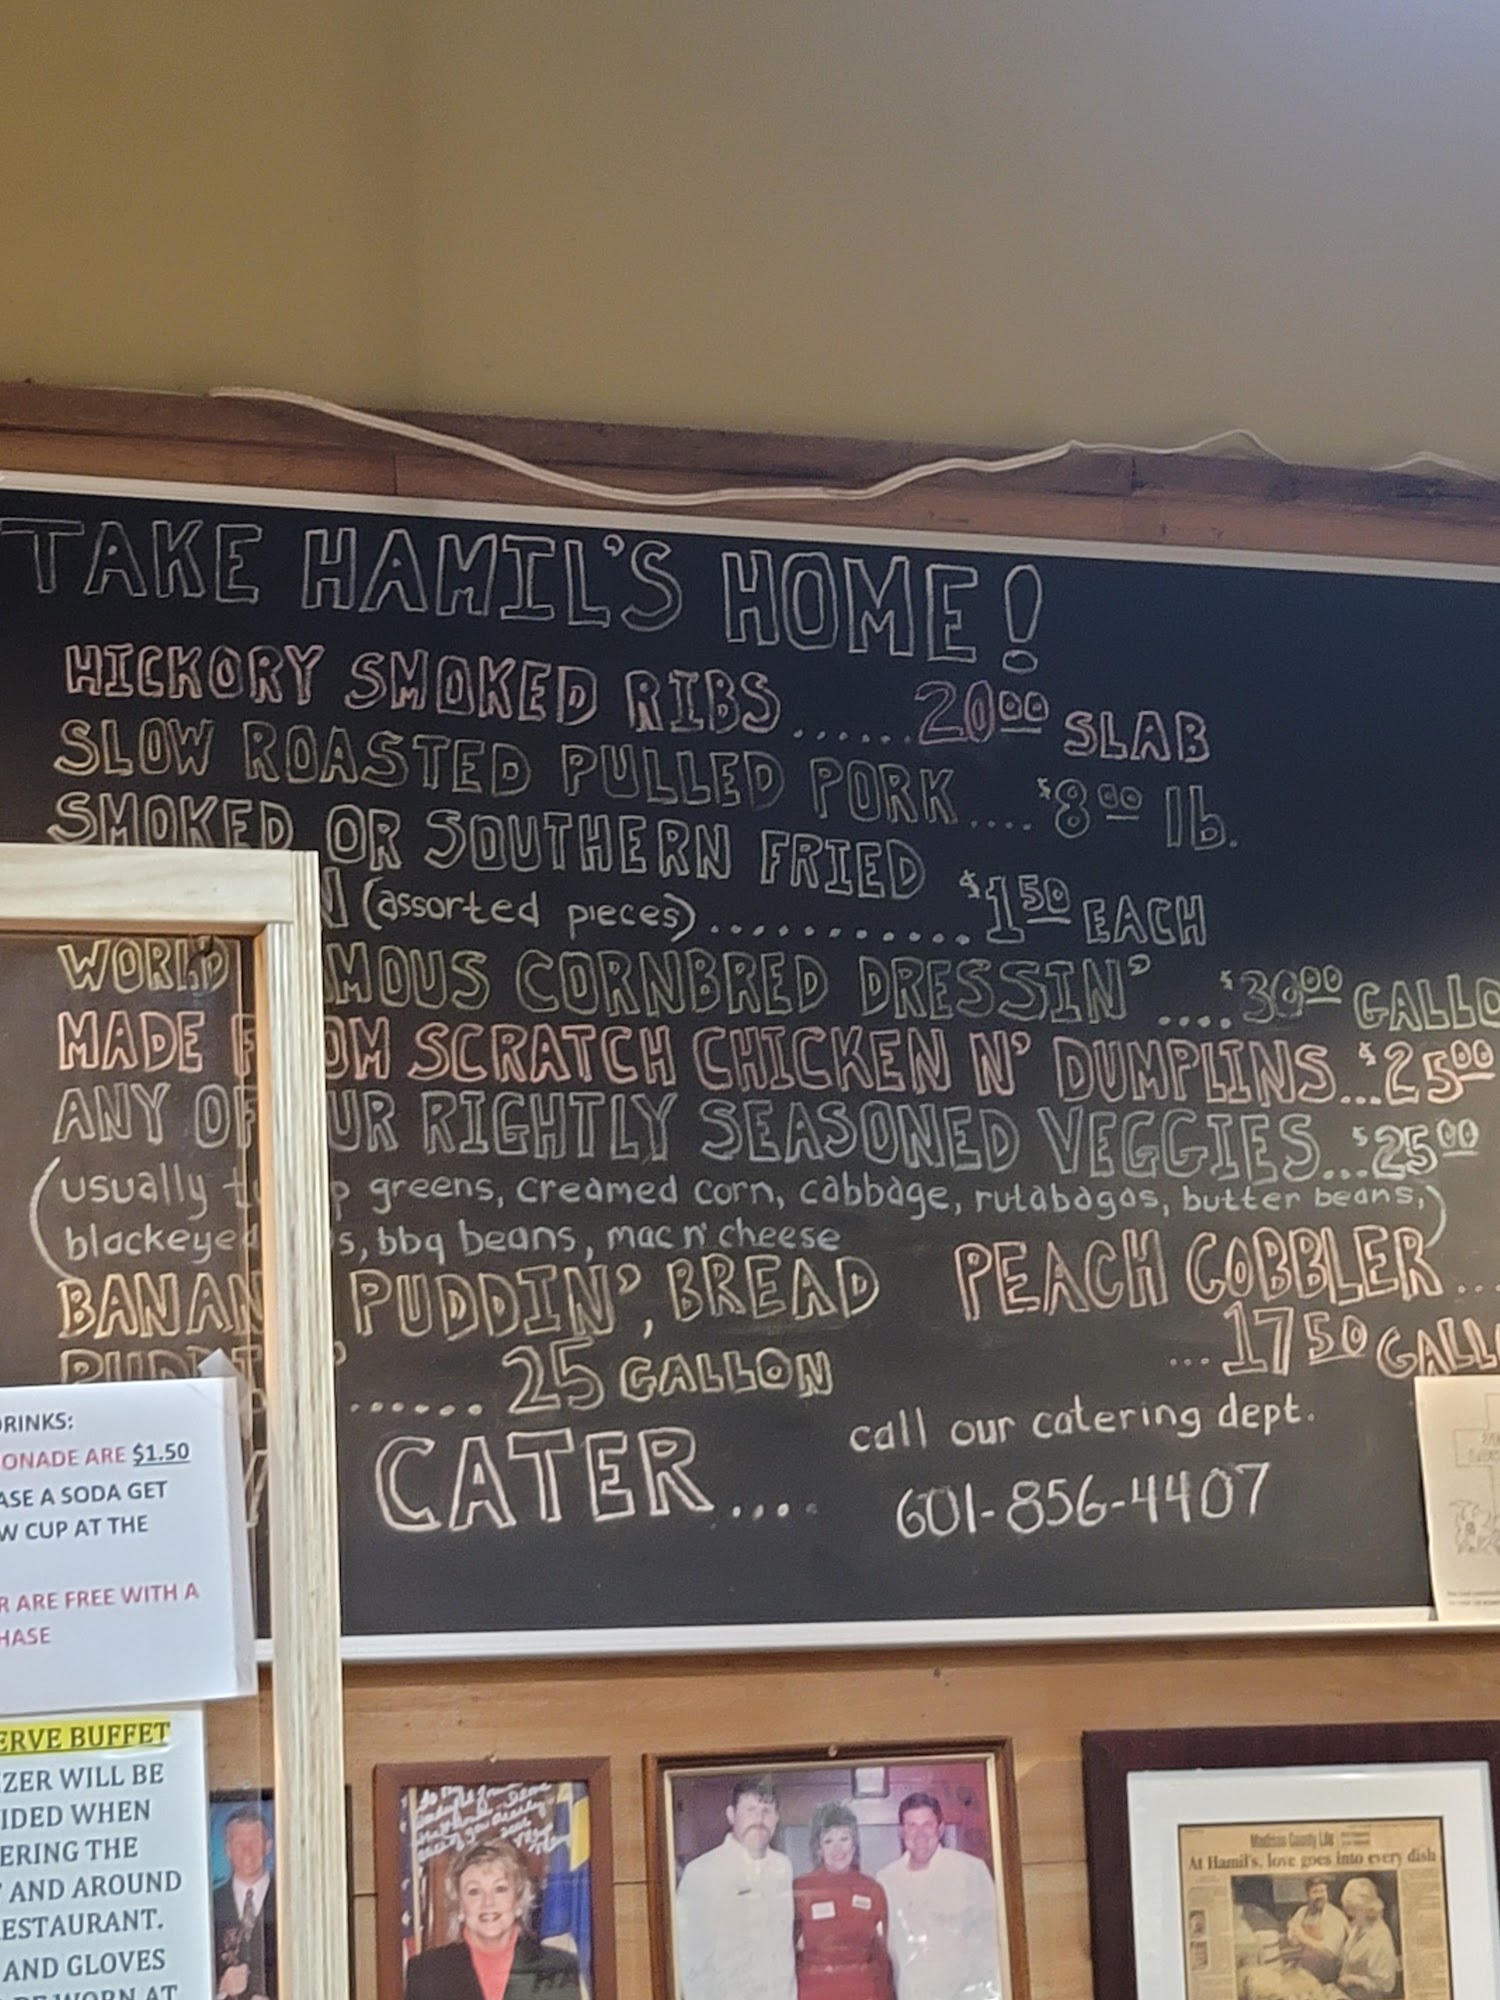 TAKE HAMIL'S HOME!
HICKORY SMOKED RIBS......20⁰⁰ SLAB
SLOW ROASTED PULLED PORK....$8⁰⁰ lb.
SMOKED OR SOUTHERN FRIED
N (assorted pieces)............$1⁵⁰ EACH
WORLD MOUS CORNBRED DRESSIN'....$30⁰⁰ GALLO
MADE F OM SCRATCH CHICKEN N' DUMPLINS...$25⁰⁰
ANY OF UR RIGHTLY SEASONED VEGGIES...$25⁰⁰
(usually tu p greens, creamed corn, cabbage, rutabagas, butter beans,)
blackeyed s, bbq beans, mac n' cheese
BANAN PUDDIN', BREAD
PUDDI '......25 GALLON
PEACH COBBLER...
...17⁵⁰ GALL
Y CATER....
call our catering dept.
601-856-4407
DRINKS:
ONADE ARE $1.50
ASE A SODA GET
W CUP AT THE
R ARE FREE WITH A
HASE
ERVE BUFFET
ZER WILL BE
IDED WHEN
ERING THE
AND AROUND
ESTAURANT.
AND GLOVES
BE WORN AT
Madison County Life
At Hamil's, love goes into every dish